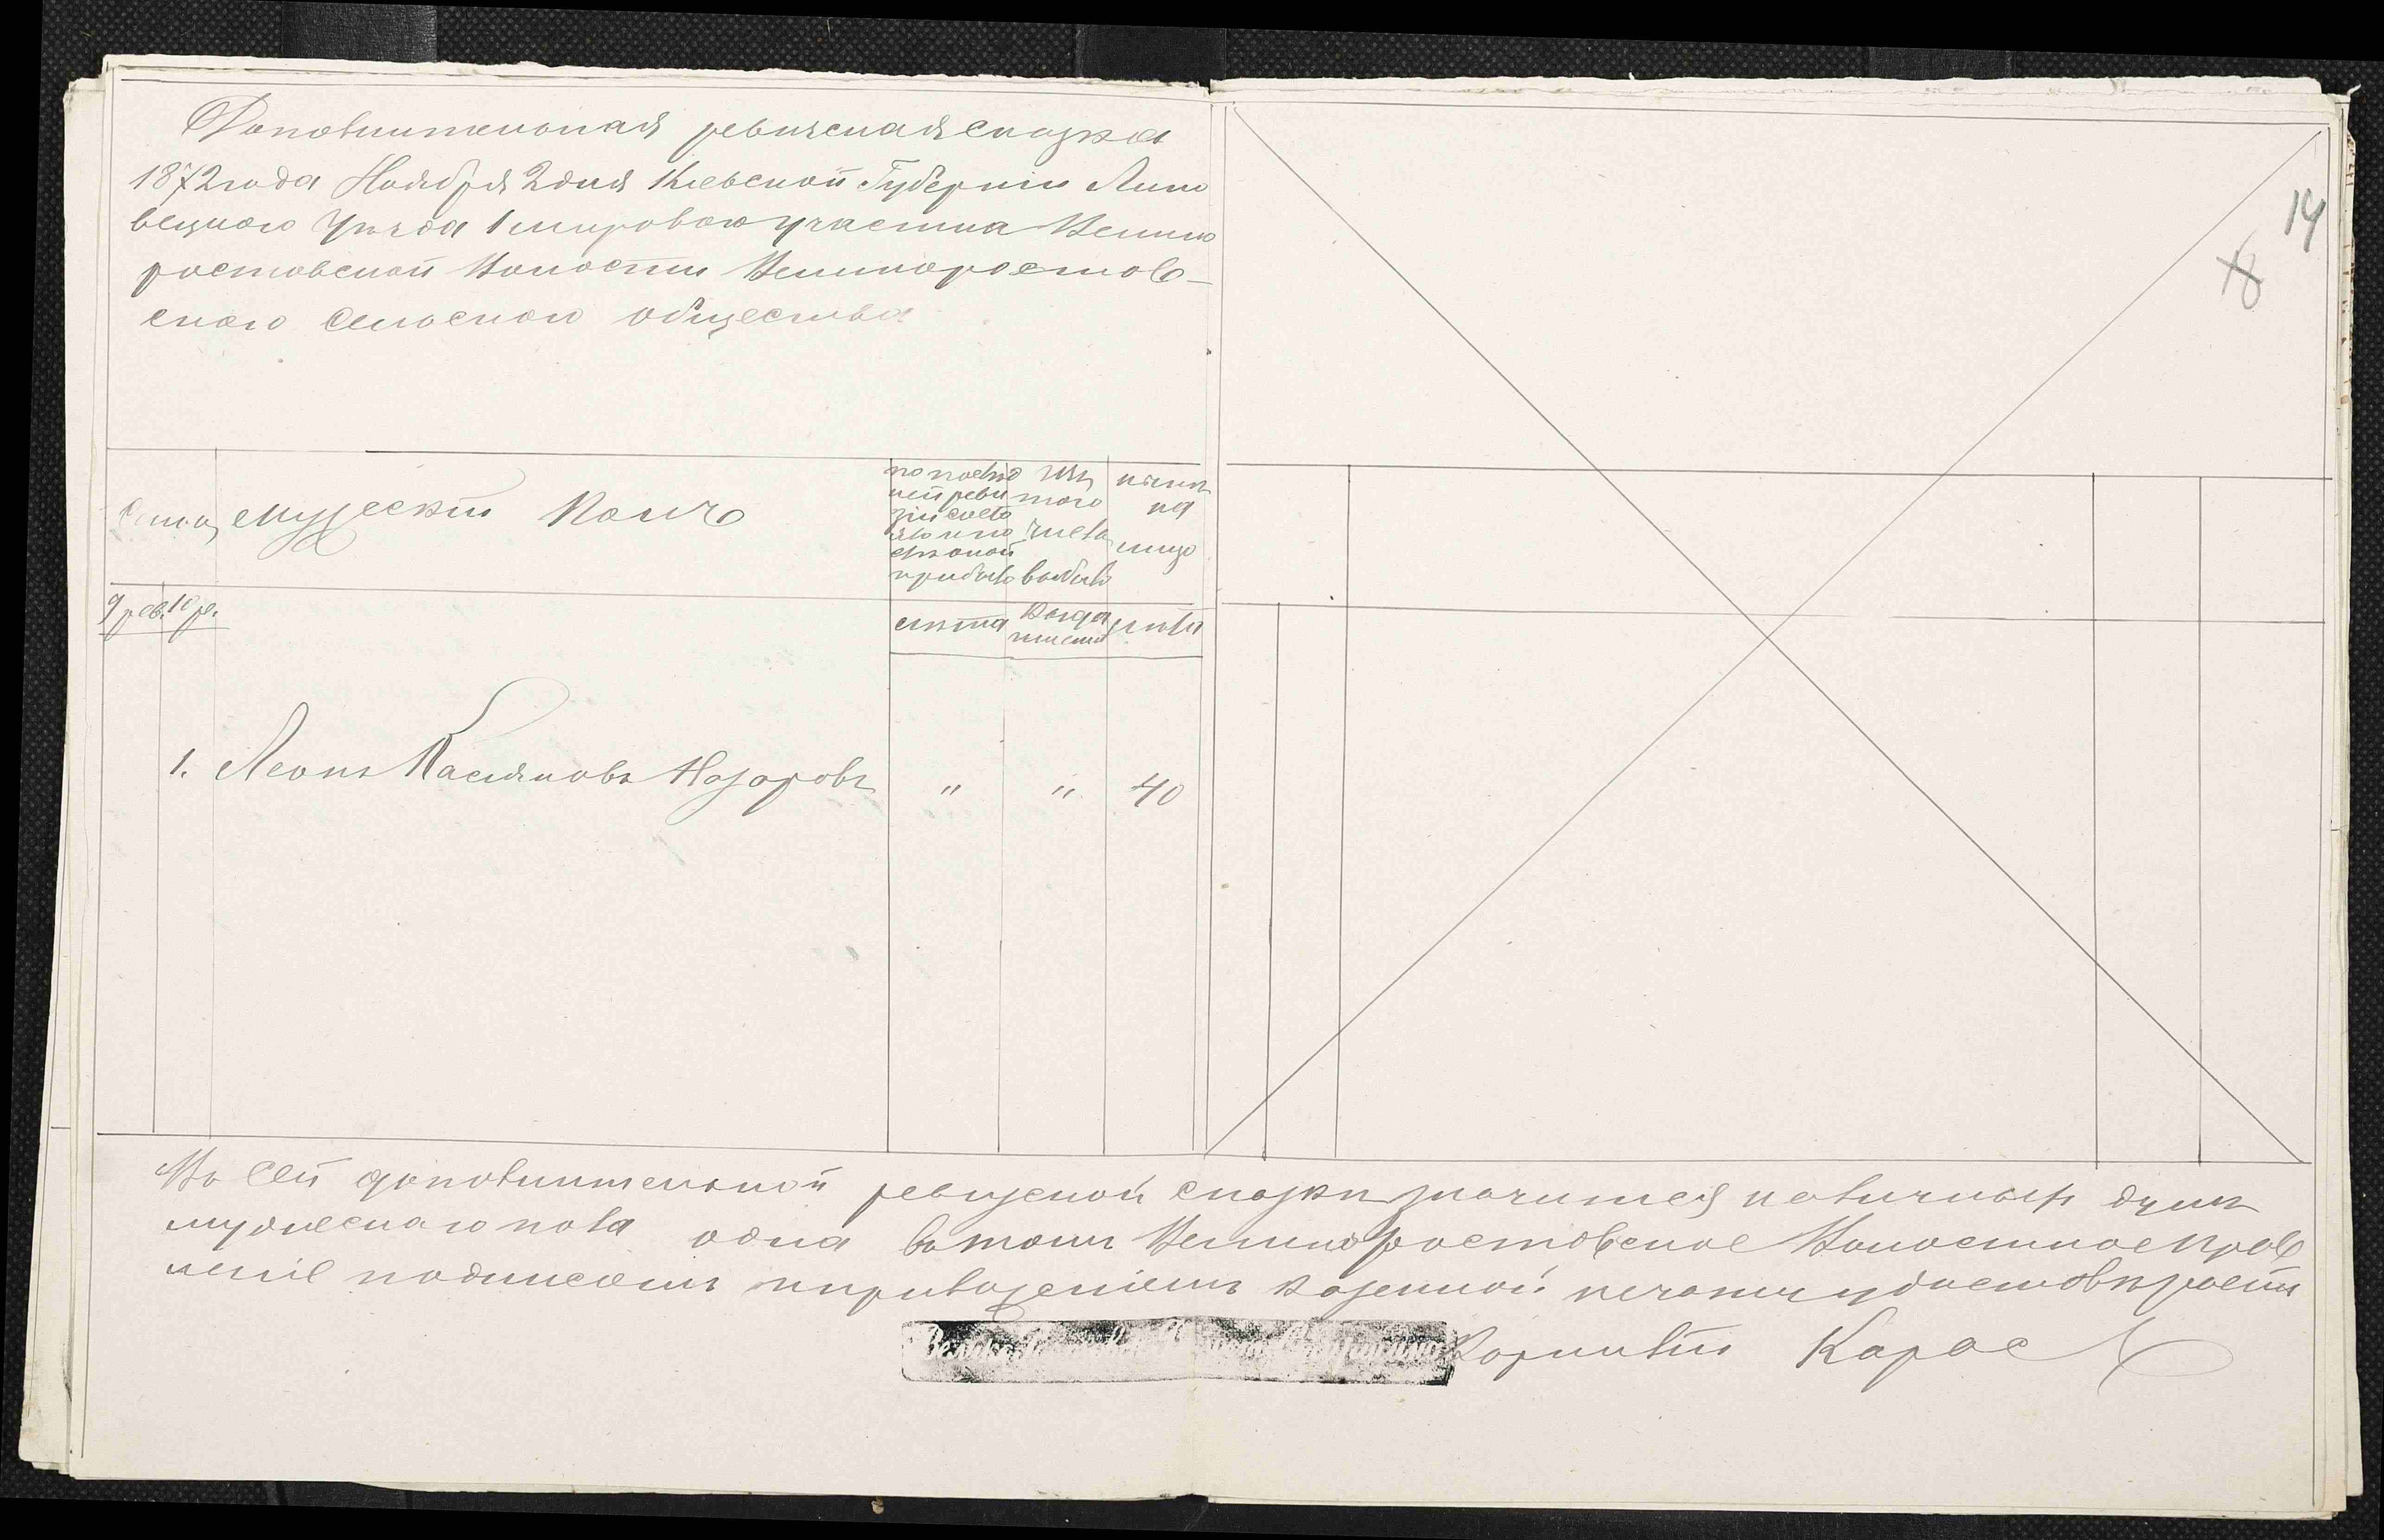 Дополнительная ревизская сказка
1872 года Ноября 2 дня Киевской Губерніи Липо
вецкаго Уѣзда 1 мироваго участка Велико
ростовской Волости Великоростов-
скаго Сельскаго общества
14
18
мужескій полъ
по послѣд
ней реви
зіи
прибыло
Изъ
того
числа
выбыло
нынѣ
на
лицо
9 рев. 10 р.
лѣта
Когда
лѣта
1. Леонъ Касіяновъ Назаровъ " " 40
Въ сей дополнительной ревизской сказкѣ значится наличныхъ душъ
мужескаго пола одна въ томъ Великоростовское Волостное Прав
леніе подписомъ и приложеніемъ казенной печати удостовѣряетъ
Карас